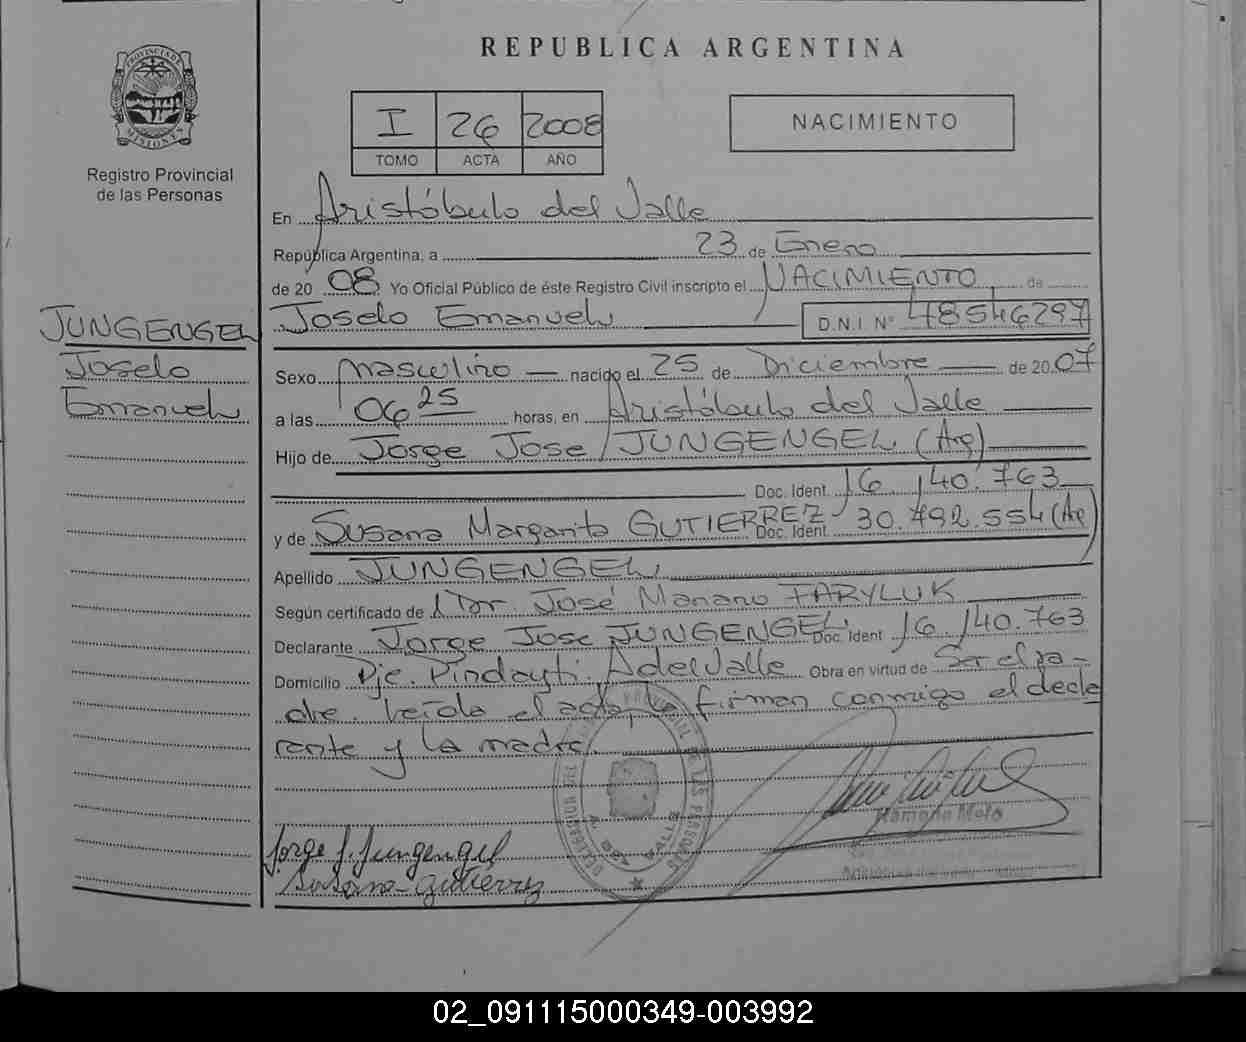 REPUBLICA ARGENTINA
PROVINCIA DE MISIONES
Registro Provincial
de las Personas
I 26 2008
TOMO ACTA AÑO
NACIMIENTO
En Aristóbulo del Valle
República Argentina, a 23 de Enero
de 20 08 Yo Oficial Público de éste Registro Civil inscripto el NACIMIENTO de
Joselo Emanuel D.N.I. Nº 48546297
JUNGENGEL
Joselo
Emanuel
Sexo masculino nacido el 25 de Diciembre de 20 07
a las 06 25 horas, en Aristóbulo del Valle
Hijo de Jorge Jose JUNGENGEL (Arg)
Doc. Ident. 16.140.763
y de Susana Margarita GUTIERREZ Doc. Ident. 30.792.554 (Arg)
Apellido JUNGENGEL
Según certificado de Dr. José Mariano FARYLUK
Declarante Jorge Jose JUNGENGEL Doc. Ident 16.140.763
Domicilio Pje. Pindayti. A del Valle Obra en virtud de Ser el pa-
dre. Leída el acta, la firman conmigo el decla
rante y la madre.
Jorge J. Jungengel
Susana Gutiérrez
Ramona Melo
02_091115000349-003992